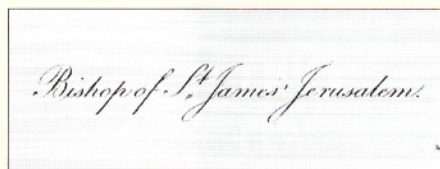 Bishop of St. James' Jerusalem.